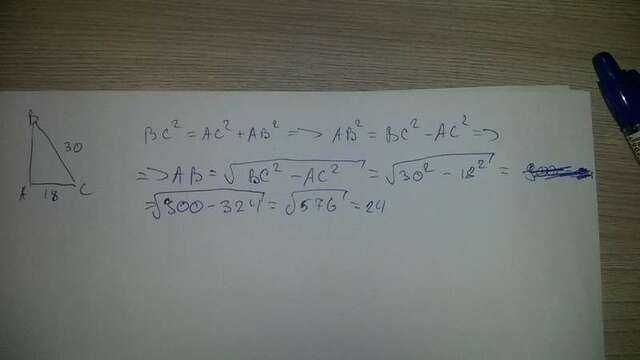 B
30
A 18 C
BC² = AC² + AB² => AB² = BC² - AC² =>
=> AB = √BC² - AC² = √30² - 18² =
= √900 - 324 = √576 = 24